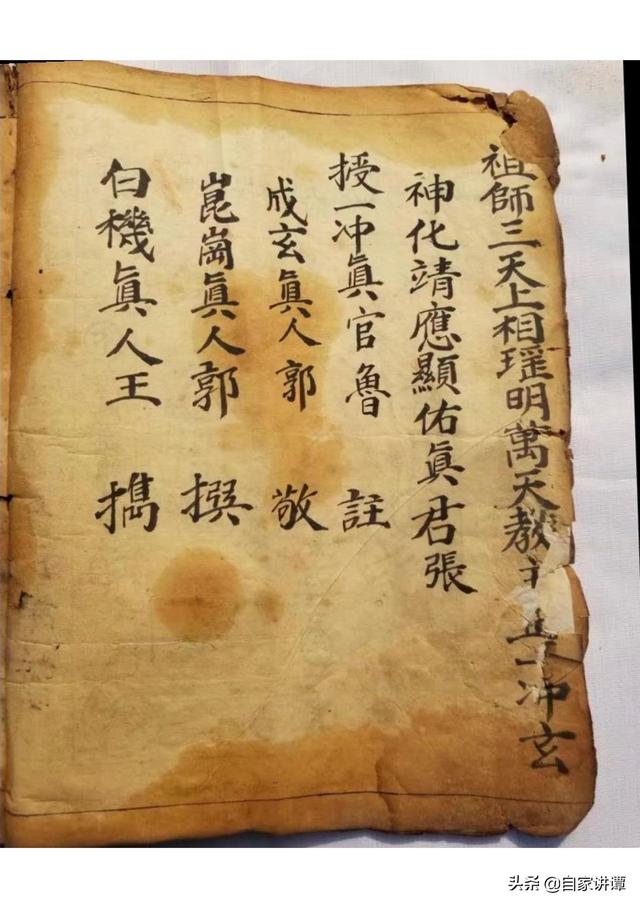 祖師三天上相瑶明萬天教主正一冲玄
神化靖應顯佑眞君張
授一冲眞官魯 註
成玄眞人郭 敬
崑崗眞人郭 撰
白機眞人王 擕
头条 @自家讲谭